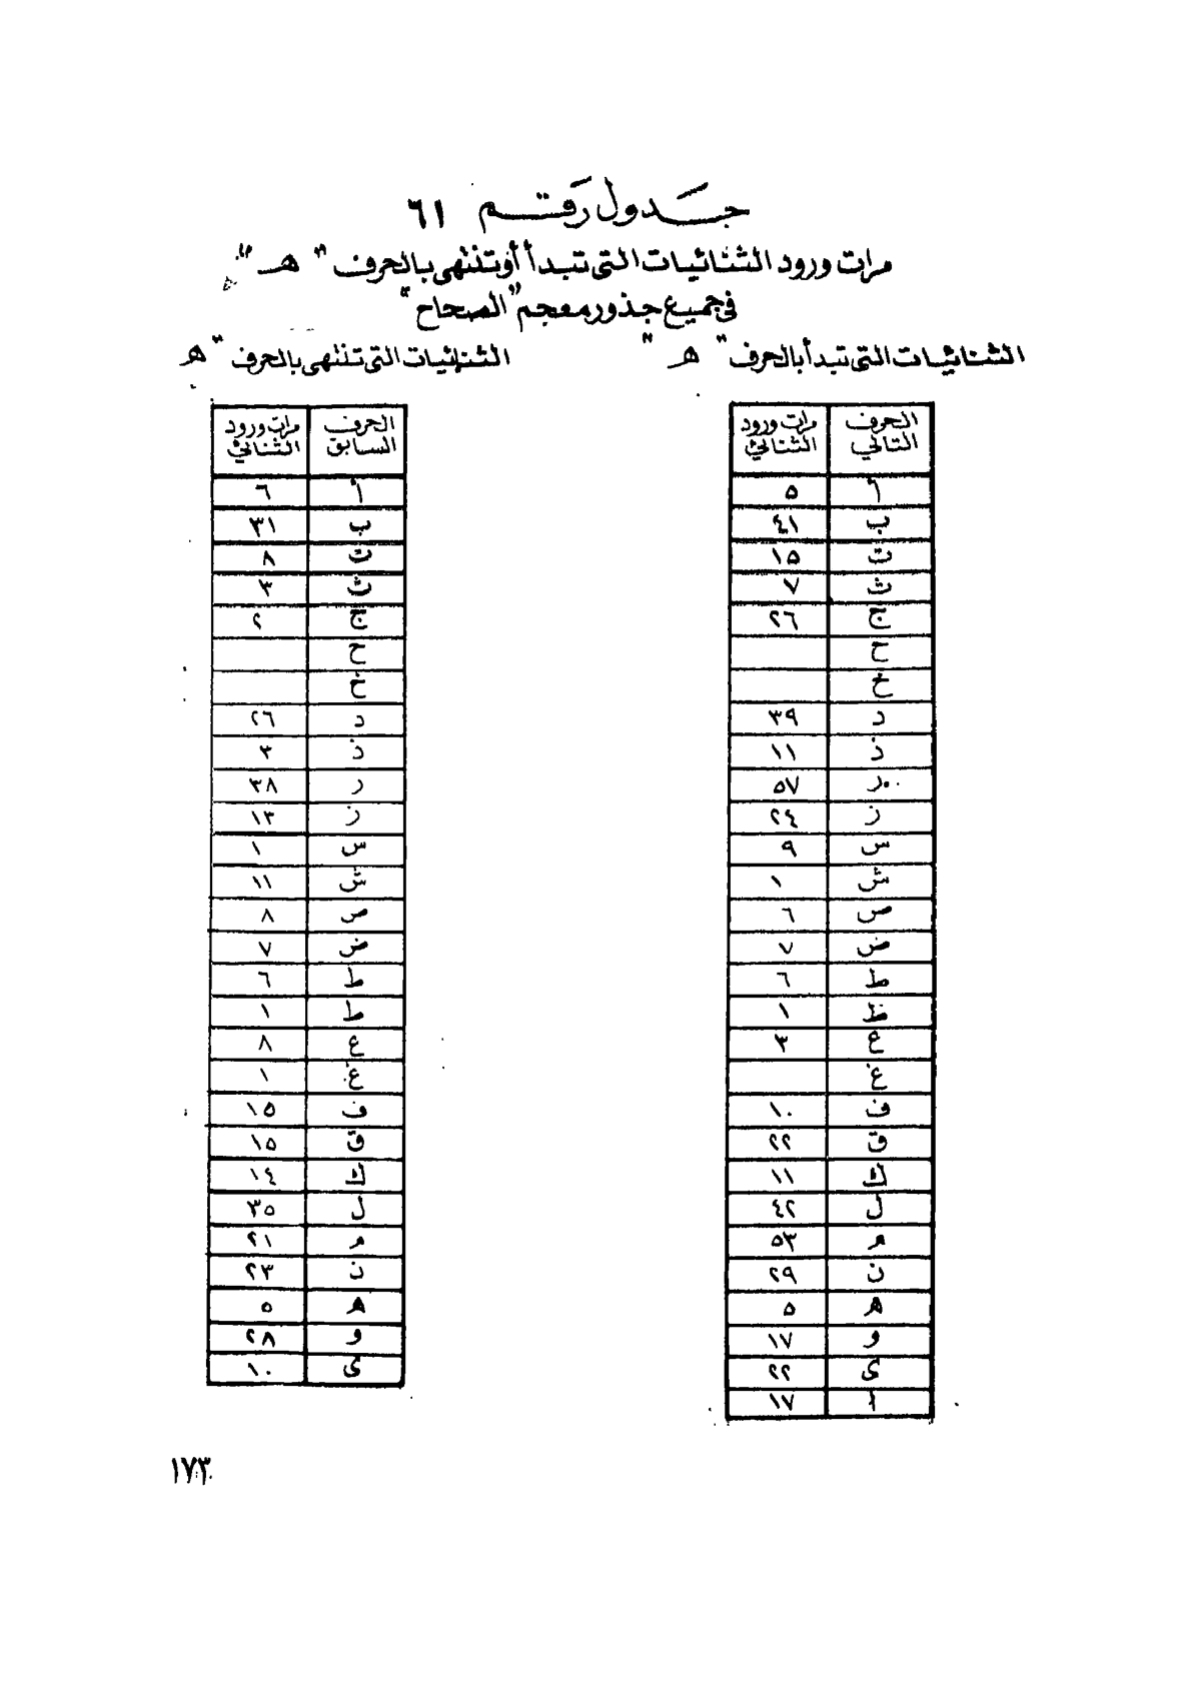 جدول رقم ٦١
مرات ورود الثنائيات التى تبدأ أو تنتهى بالحرف " هـ "
فى جميع جذور معجم "الصحاح"
الثنائيات التى تبدأ بالحرف " هـ "
الحرف التالي مرات ورود الثنائي
أ ٥
ب ٤١
ت ١٥
ث ٧
ج ٢٦
ح
خ
د ٣٩
ذ ١١
ر ٥٧
ز ٢٤
س ٩
ش ١
ص ٦
ض ٧
ط ٦
ظ ١
ع ٣
غ
ف ١٠
ق ٢٢
ك ١١
ل ٤٢
م ٥٣
ن ٢٩
هـ ٥
و ١٧
ى ٢٢
ا ١٧
الثنائيات التى تنتهى بالحرف " هـ
الحرف السابق مرات ورود الثنائي
أ ٦
ب ٣١
ت ٨
ث ٣
ج ٢
ح
خ
د ٢٦
ذ ٣
ر ٣٨
ز ١٣
س ١
ش ١١
ص ٨
ض ٧
ط ٦
ط ١
ع ٨
غ ١
ف ١٥
ق ١٥
ك ١٤
ل ٣٥
م ٢١
ن ٢٣
هـ ٥
و ٢٨
ى ١٠
١٧٣